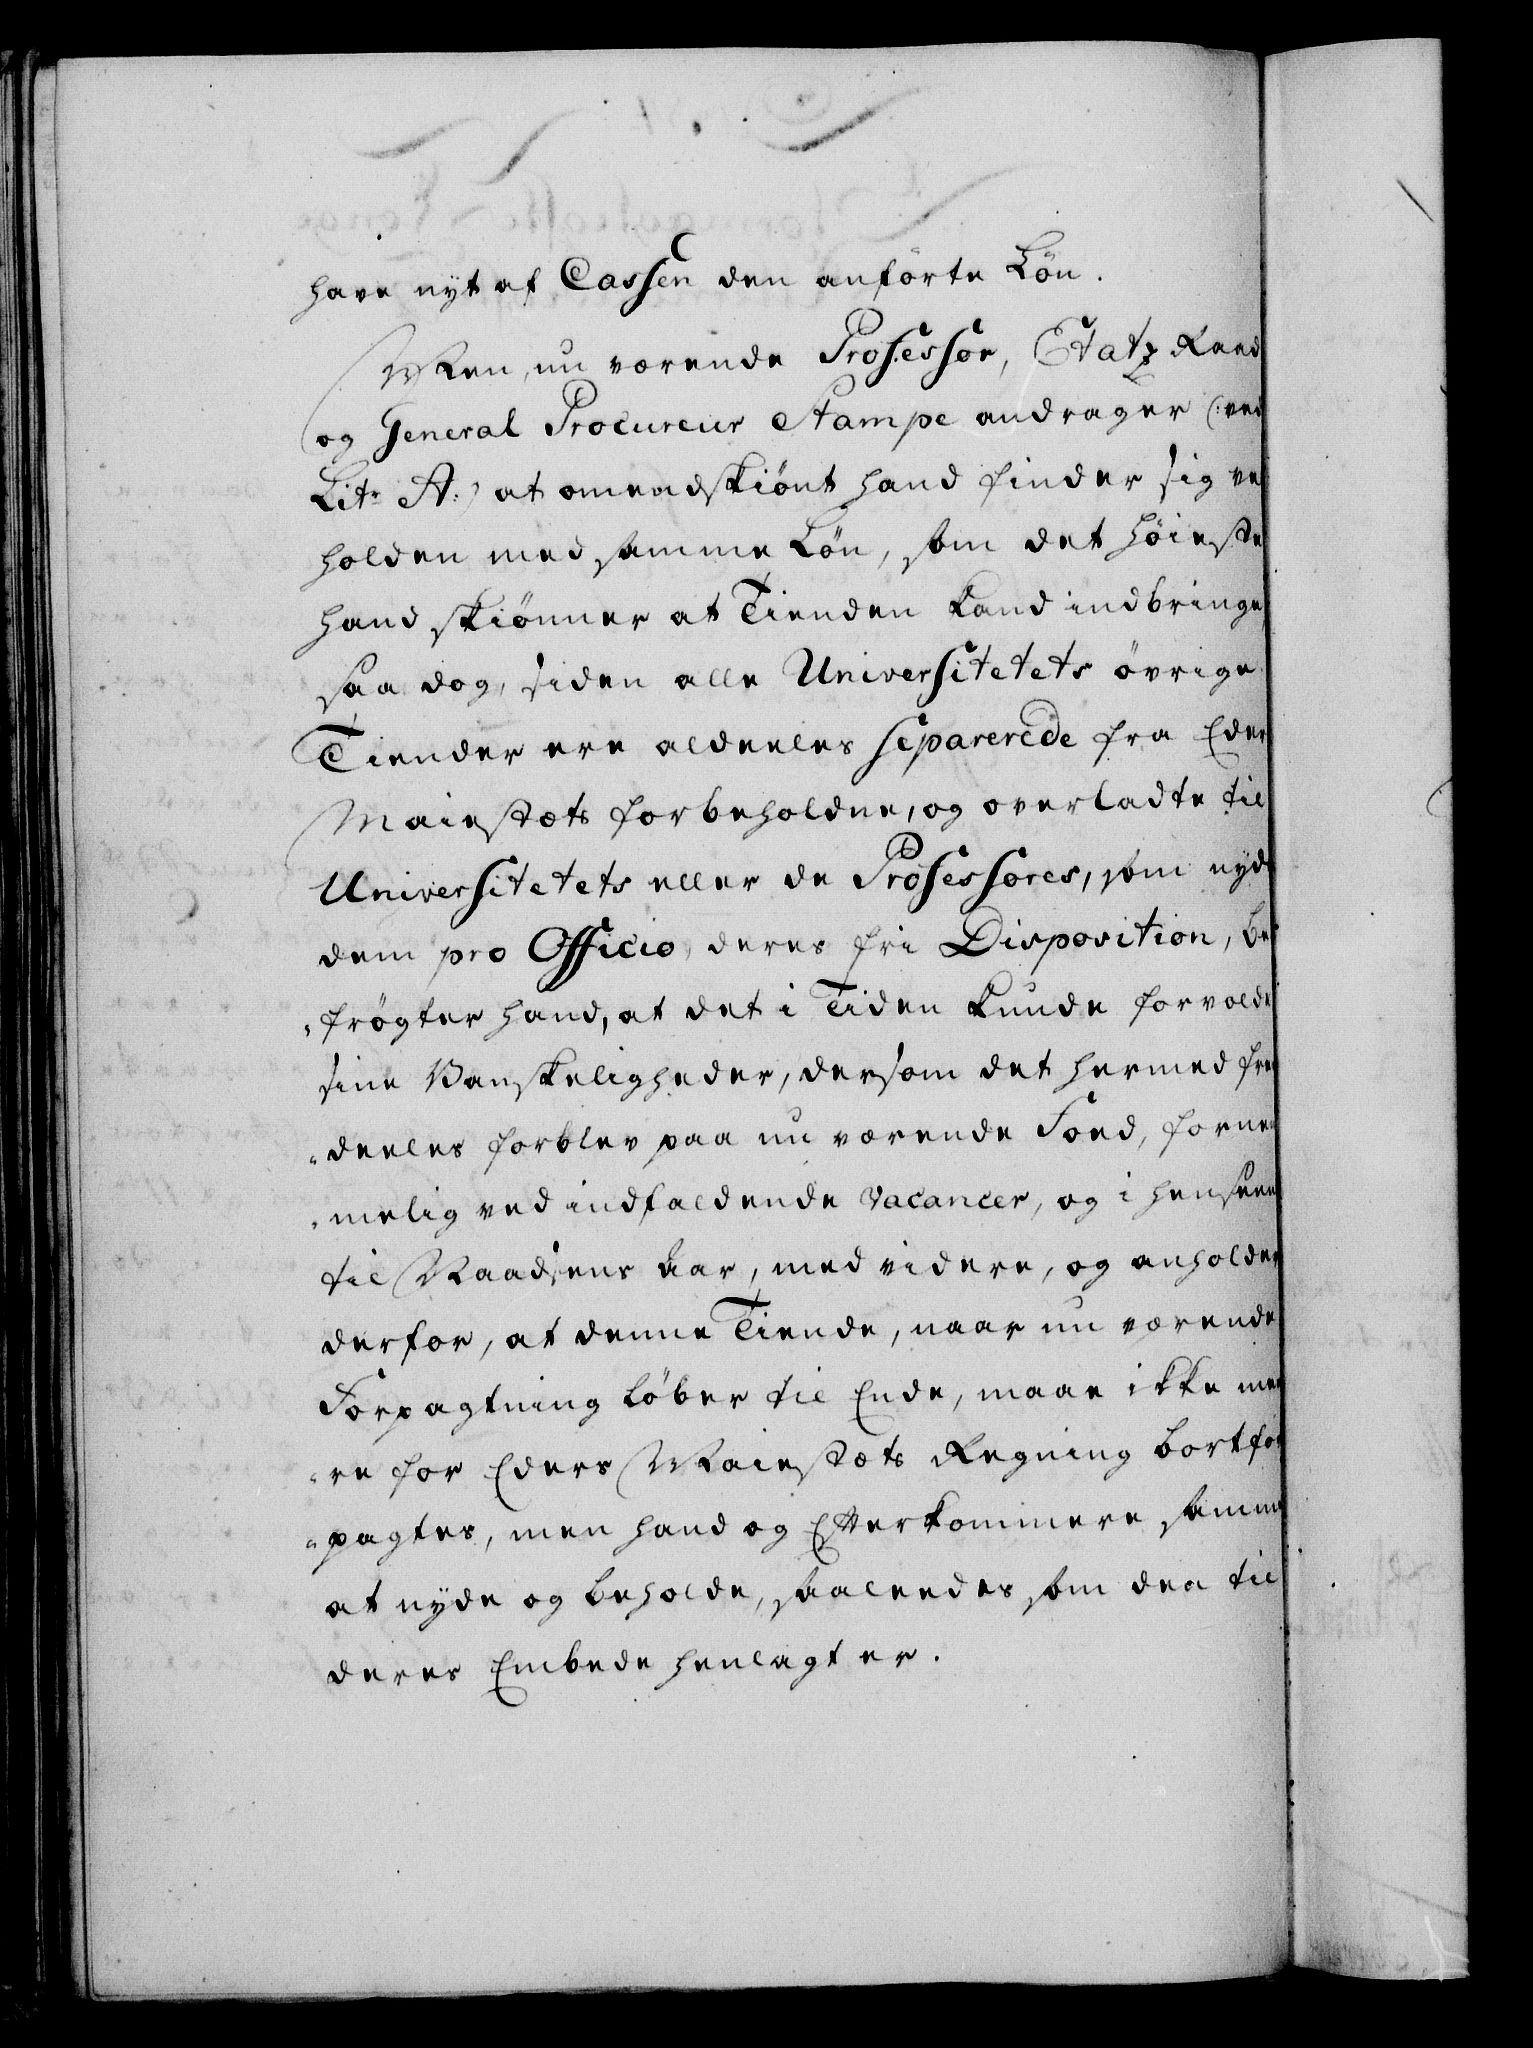 have nyt af Cassen den anførte Løn.
Men, nu værende Professor, Etatz Raad
og General Procureur Stampe andrager (: ved
Litr A:) at omendskiønt hand finder sig vel
holden med samme Løn, som det høieste
hand skiønner at Tienden kand indbringe,
saa dog, siden alle Universitetets øvrige
Tiender ere aldeeles separerede fra Eders
Maiestæts forbeholdne, og overladte til
Universitetets eller de Professores, som nyde
dem pro Officio, deres fri Disposition, be
frøgter hand, at det i Tiden kunde forvolde
sine Vanskeligheder, dersom det hermed frem
deeles forblev paa nu værende Foed, fornem
melig ved indfaldende Vacancer, og i henseende
til Naadsens Aar, med videre, og anholder
derfor, at denne Tiende, naar nu værende
Forpagtning løber til Ende, maae ikke mee
re for Eders Maiestæts Regning bortfor
pagtes, men hand og Efterkommere samme
at nyde og beholde, saaleedes som den til
deres Embede henlagt er.